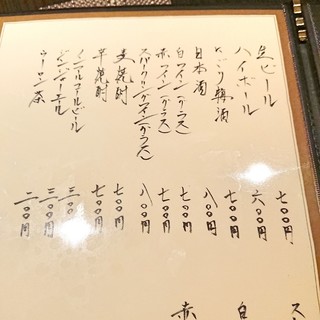 生ビール 七〇〇円
ハイボール 六〇〇円
にごり梅酒 七〇〇円
日本酒 八〇〇円
白ワイン(グラス) 七〇〇円
赤ワイン(グラス) 七〇〇円
スパークリングワイン(グラス) 八〇〇円
麦焼酎 七〇〇円
芋焼酎 七〇〇円
ノンアルコールビール
ジンジャーエール 三〇〇円
ウーロン茶 二〇〇円
ス
白
赤